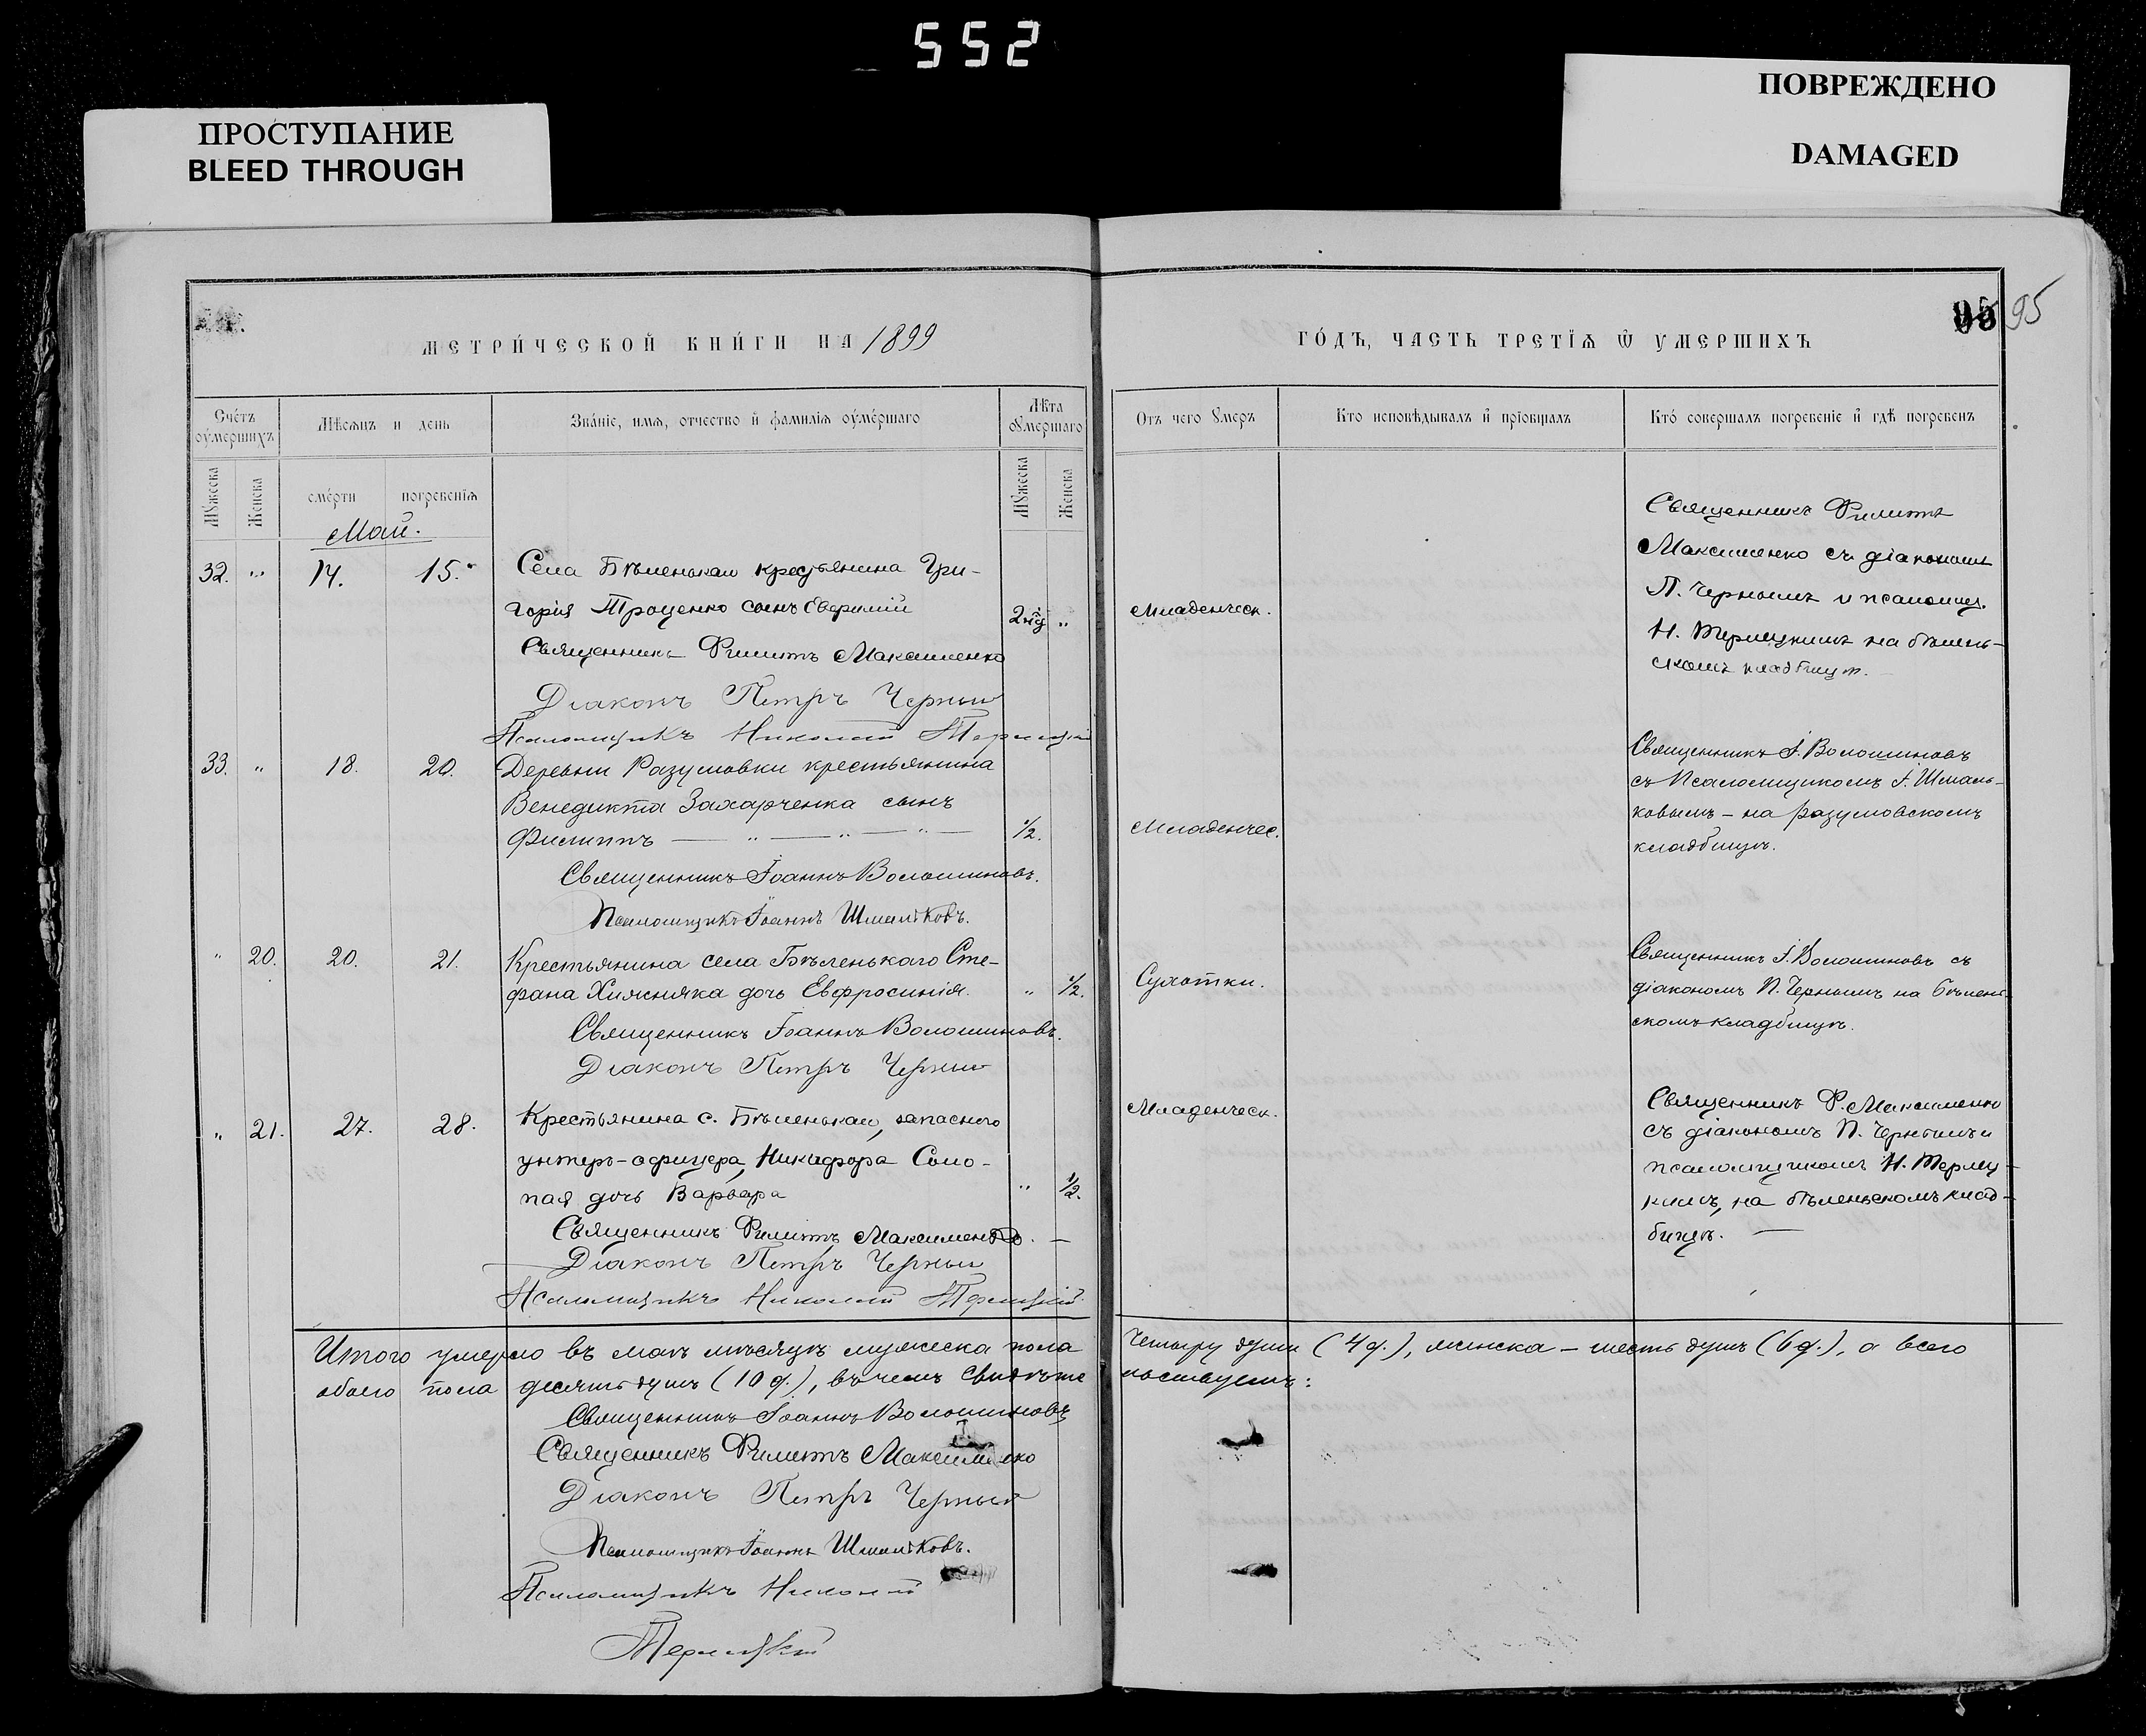 552
ПРОСТУПАНИЕ
BLEED THROUGH
ПОВРЕЖДЕНО
DAMAGED
95 95
МЕТРИ́ЧЕСКОЙ КНИ́ГИ НА 1899
ГО́ДЪ, ЧАСТЬ ТРЕТЇѦ Ѡ҆ УМЕРШИХЪ
Счетъ оумершихъ
Мѣсѧцъ и день
Званіе, имѧ, отчество и фамиліѧ оумершаго
Лѣта оумершаго
Отъ чего умеръ
Кто исповѣдывалъ и пріобщалъ
Кто совершалъ погребеніе и гдѣ погребенъ
Мужеска
Женска
смерти
погребеніѧ
Мужеска
Женска
Май.
32. " 14. 15.
Села Бѣленькаи крестьянина Гри-
горія Троценко сынъ Евфимій
2 "
Священникъ Филиппъ Максименко
Діаконъ Петръ Черный
Псаломщикъ Николай Терлецкій
Младенческ.
Священникъ Филиппъ
Максименко съ діакономъ
П. Чернымъ и псаломщ.
Н. Терлецкимъ на бѣлень-
скомъ кладбищѣ.
33. " 18. 20.
Деревни Разумовки крестьянина
Венедикта Захарченка сынъ
Филиппъ — " — " — " —
1/2.
Священникъ Іоаннъ Волошиновъ.
Псаломщикъ Іоаннъ Шмальковъ.
Младенчес.
Священникъ І. Волошиновъ
съ Псаломщикомъ І. Шмаль-
ковымъ – на разумовскомъ
кладбищѣ.
" 20. 20. 21.
Крестьянина села Бѣленькаго Сте-
фана Хижняка дочь Евфросинія.
" 1/2.
Священникъ Іоаннъ Волошиновъ.
Діаконъ Петръ Черный
Сухотки.
Священникъ І. Волошиновъ съ
діакономъ П. Чернымъ на бѣлень-
скомъ кладбищѣ.
" 21. 27. 28.
Крестьянина с. Бѣленькаи, запасного
унтеръ-офицера, Никифора Соло-
пая дочь Варвара
" 1/2.
Священникъ Филиппъ Максименко. —
Діаконъ Петръ Черный
Псаломщикъ Николай Терлецкій.
Младенческ.
Священникъ Ф. Максименко
съ діакономъ П. Чернымъ и
псаломщикомъ Н. Терлец-
кимъ, на бѣленьскомъ клад-
бищѣ. —
Итого умерло въ маѣ мѣсяцѣ мужеска пола четыре души (4 д.), женска – шесть душъ (6 д.), а всего
обоего пола десять душъ (10 д.), въ чемъ свидѣтельствуемъ:
Священникъ Іоаннъ Волошиновъ
Священникъ Филиппъ Максименко
Діаконъ Петръ Черный
Псаломщикъ Іоаннъ Шмальковъ.
Псаломщикъ Николай
Терлецкій